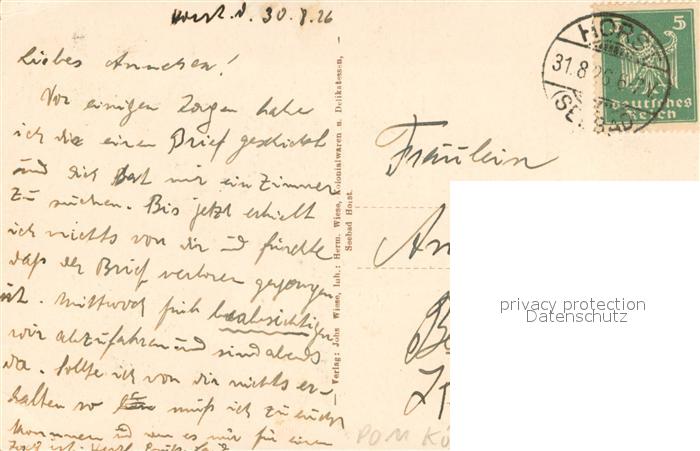 Horst d. 30.8.26
Liebes Annchen!
Vor einigen Tagen habe
ich dir einen Brief geschickt
und dich mir ein Zimmer
zu suchen. Bis jetzt erhielt
ich nichts von dir und fürchte
daß der Brief verloren gegangen
ist. Mittwoch früh beabsichtigen
wir abzufahren und sind abends
da. Sollte ich von dir nichts er-
halten so muß ich zu euch
kommen und wen es nur für eine
Verlag: Johs Wiese, Inh.: Herm. Wiese, Kolonialwaren u. Delikatessen,
Seebad Horst.
HORST
31.8.26.6-7N
(SEEBAD)
5
Deutsches
Reich
Fräulein
An
privacy protection
Datenschutz
POM KÖ